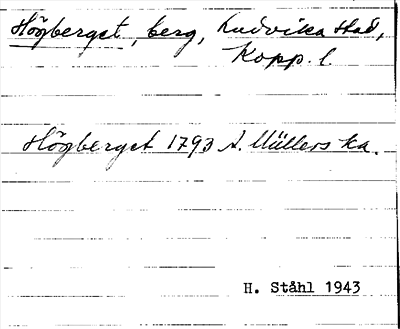 Högberget, berg, Ludvika stad,
Kopp. l.
Högberget 1793 A. Müllers ka.
H. Ståhl 1943